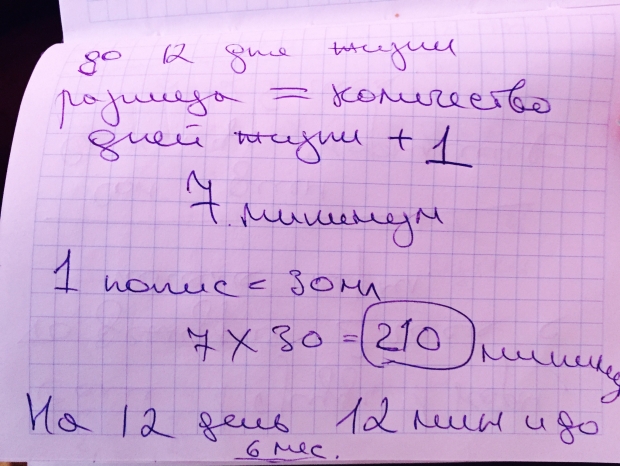 до 12 дня жизни
разница = количество
дней жизни + 1
7 минимум
1 попис = 30 мл
7 X 30 = 210 миним
На 12 день 12 мин и до
6 мес.